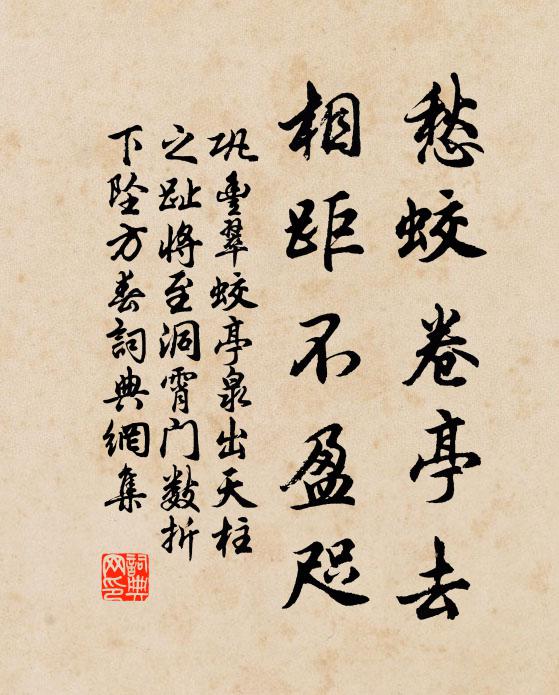 愁蛟卷亭去
相距不盈咫
巩豊翠蛟亭泉出天柱
之趾将至洞霄门数折
下坠方春詞典網集
詞典
网印